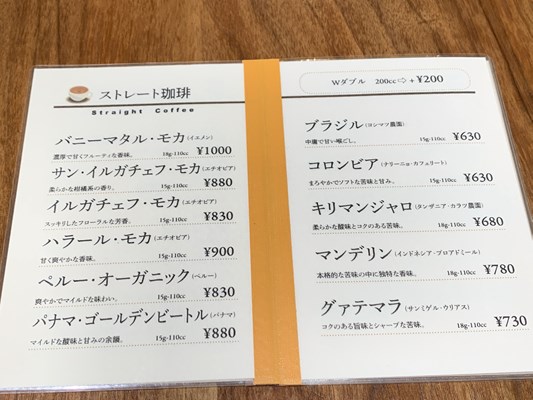 ストレート珈琲
Straight Coffee
バニーマタル・モカ(イエメン)
濃厚で甘くフルーティな香味。 18g-110cc ¥1000
サン・イルガチェフ・モカ(エチオピア)
柔らかな柑橘系の香り。 15g-110cc ¥880
イルガチェフ・モカ(エチオピア)
スッキリしたフローラルな芳香。 15g-110cc ¥830
ハラール・モカ(エチオピア)
甘く爽やかな香味。 15g-110cc ¥900
ペルー・オーガニック(ペルー)
爽やかでマイルドな味わい。 15g-110cc ¥830
パナマ・ゴールデンビートル(パナマ)
マイルドな酸味と甘みの余韻。 15g-110cc ¥880
Wダブル 200cc⇨+¥200
ブラジル(ヨシマツ農園)
中庸で甘い喉ごし。 15g-110cc ¥630
コロンビア(クリーニョ・カフェリート)
まろやかでソフトな苦味と甘み。 15g-110cc ¥630
キリマンジャロ(タンザニア・カラツ農園)
柔らかな酸味とコクのある苦味。 18g-110cc ¥680
マンデリン(インドネシア・ブロアドミール)
本格的な苦味の中に独特な香味。 18g-110cc ¥780
グァテマラ(サンミゲル・ウリアス)
コクのある旨味とシャープな苦味。 18g-110cc ¥730